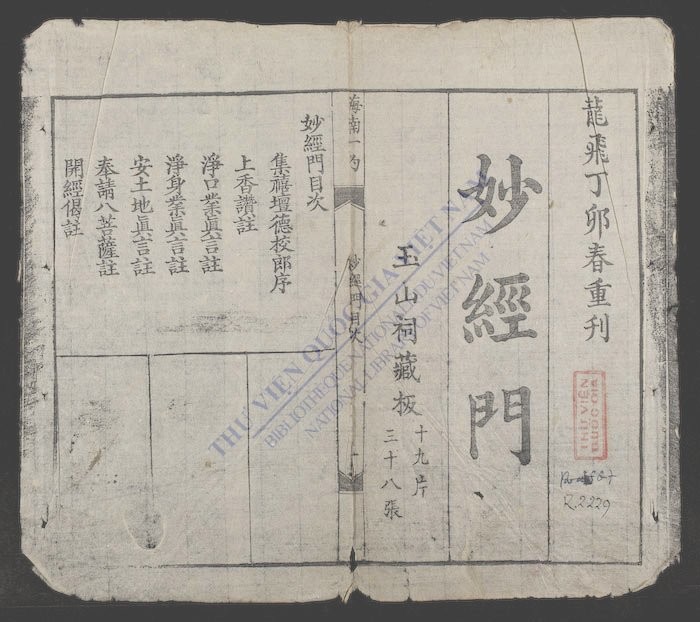 龍飛丁卯春重刊
妙經門
玉山祠藏板
十九片
三十八張
THƯ VIỆN QUỐC GIA
R.2229
海南一勺
妙經門目次
一
妙經門目次
集禧壇德校郎序
上香讚註
淨口業眞言註
淨身業眞言註
安土地眞言註
奉請八菩薩註
開經偈註
THƯ VIỆN QUỐC GIA VIỆT NAM
BIBLIOTHÈQUE NATIONALE DU VIETNAM
NATIONAL LIBRARY OF VIETNAM